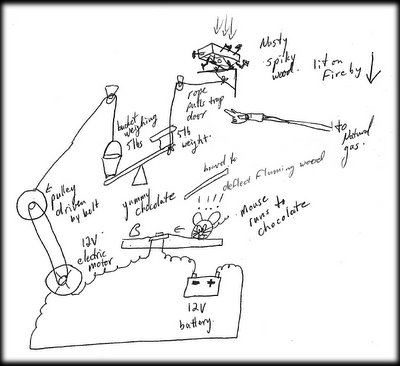 Nasty
spiky
wood.
lit on
Fire by
rope
pulls trap
door
to
Natural
gas.
bucket weighing
5lbs
5lb
weight.
board to
deflect flaming wood
pulley
driven
by belt
yummy
chocolate
mouse
runs to
chocolate
12V
electric
motor
- +
12V
battery